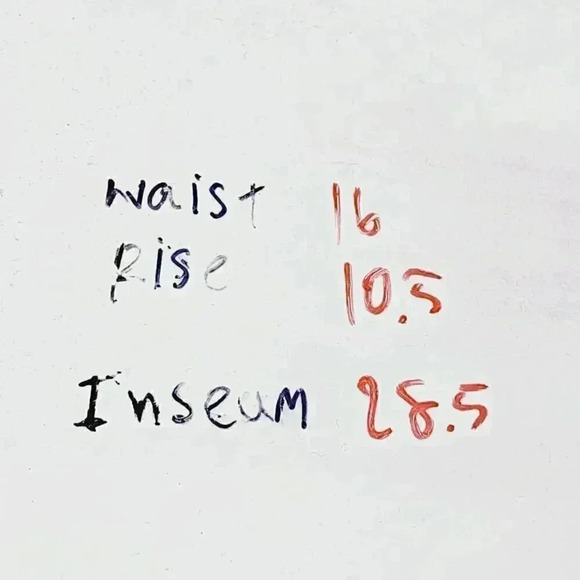 waist 16
Rise 10.5
Inseum 28.5